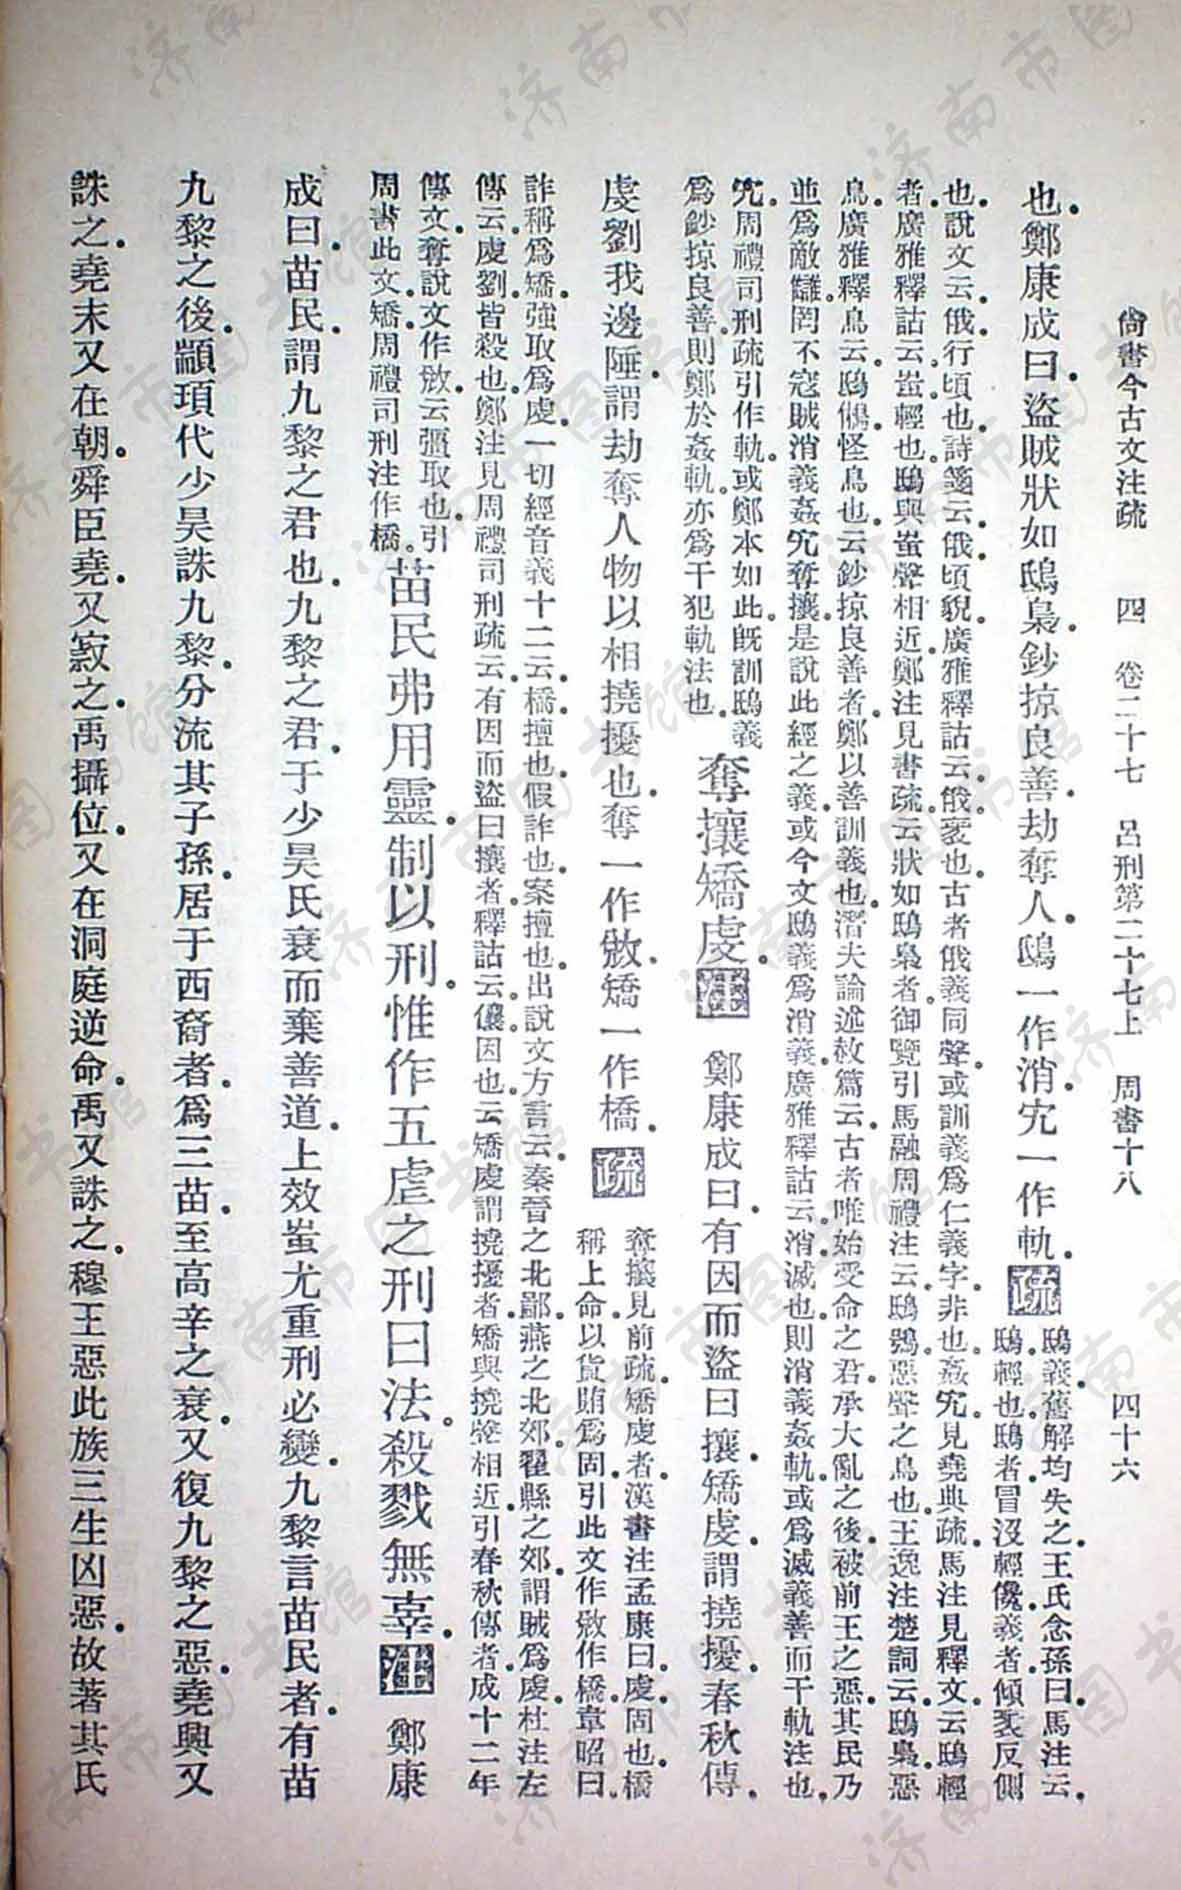 尙書今古文注疏　四　卷二十七　呂刑第二十七上　周書十八　四十六
也。鄭康成曰。盜賊狀如鴟梟。鈔掠良善。劫奪人。鴟一作消。宄一作軌。疏
鴟義。舊解均失之。王氏念孫曰。馬注云。
鴟。輕也。鴟者。冒沒輕儳。義者。傾衺反側
也。說文云。俄。行頃也。詩箋云。俄。頃貌。廣雅釋詁云。俄。衺也。古者俄義同聲。或訓義爲仁義字。非也。姦宄。見堯典疏。馬注見釋文。云鴟輕
者。廣雅釋詁云。蚩。輕也。鴟與蚩聲相近。鄭注見書疏。云狀如鴟梟者。御覽引馬融周禮注云。鴟鴞。惡聲之鳥也。王逸注楚詞云。鴟梟。惡
鳥。廣雅釋鳥云。鴟鵂。怪鳥也。云鈔掠良善者。鄭以善訓義也。潛夫論述赦篇云。古者唯始受命之君。承大亂之後。被前王之惡。其民乃
並爲敵讎。罔不寇賊消義。姦宄奪攘。是說此經之義。或今文鴟義爲消義。廣雅釋詁云。消。滅也。則消義姦軌。或爲滅義善而干軌法也。
宄。周禮司刑疏引作軌。或鄭本如此。旣訓鴟義
爲鈔掠良善。則鄭於姦軌。亦爲干犯軌法也。
奪攘矯虔。注　鄭康成曰。有因而盜曰攘。矯虔。謂撓擾。春秋傳
虔劉我邊陲。謂劫奪人物以相撓擾也。奪一作敓。矯一作橋。疏
奪攘。見前疏。矯虔者。漢書注孟康曰。虔。固也。橋
稱上命。以貨賄爲固。引此文作敓作橋。韋昭曰。
詐稱爲矯。強取爲虔。一切經音義十二云。橋。擅也。假詐也。案擅也。出說文。方言云。秦晉之北鄙。燕之北郊。翟縣之郊。謂賊爲虔。杜注左
傳云。虔劉。皆殺也。鄭注見周禮司刑疏。云有因而盜曰攘者。釋詁云。儴。因也。云矯虔謂撓擾者。矯與撓聲相近。引春秋傳者。成十二年
傳文。奪。說文作敓。云彊取也。引
周書此文。矯。周禮司刑注作橋。
苗民弗用靈。制以刑。惟作五虐之刑曰法。殺戮無辜。注　鄭康
成曰。苗民。謂九黎之君也。九黎之君。于少昊氏衰而棄善道。上效蚩尤重刑。必變九黎言苗民者。有苗
九黎之後。顓頊代少昊誅九黎。分流其子孫。居于西裔者。爲三苗。至高辛之衰。又復九黎之惡。堯興。又
誅之。堯末又在朝。舜臣堯。又竄之。禹攝位。又在洞庭逆命。禹又誅之。穆王惡此族三生凶惡。故著其氏